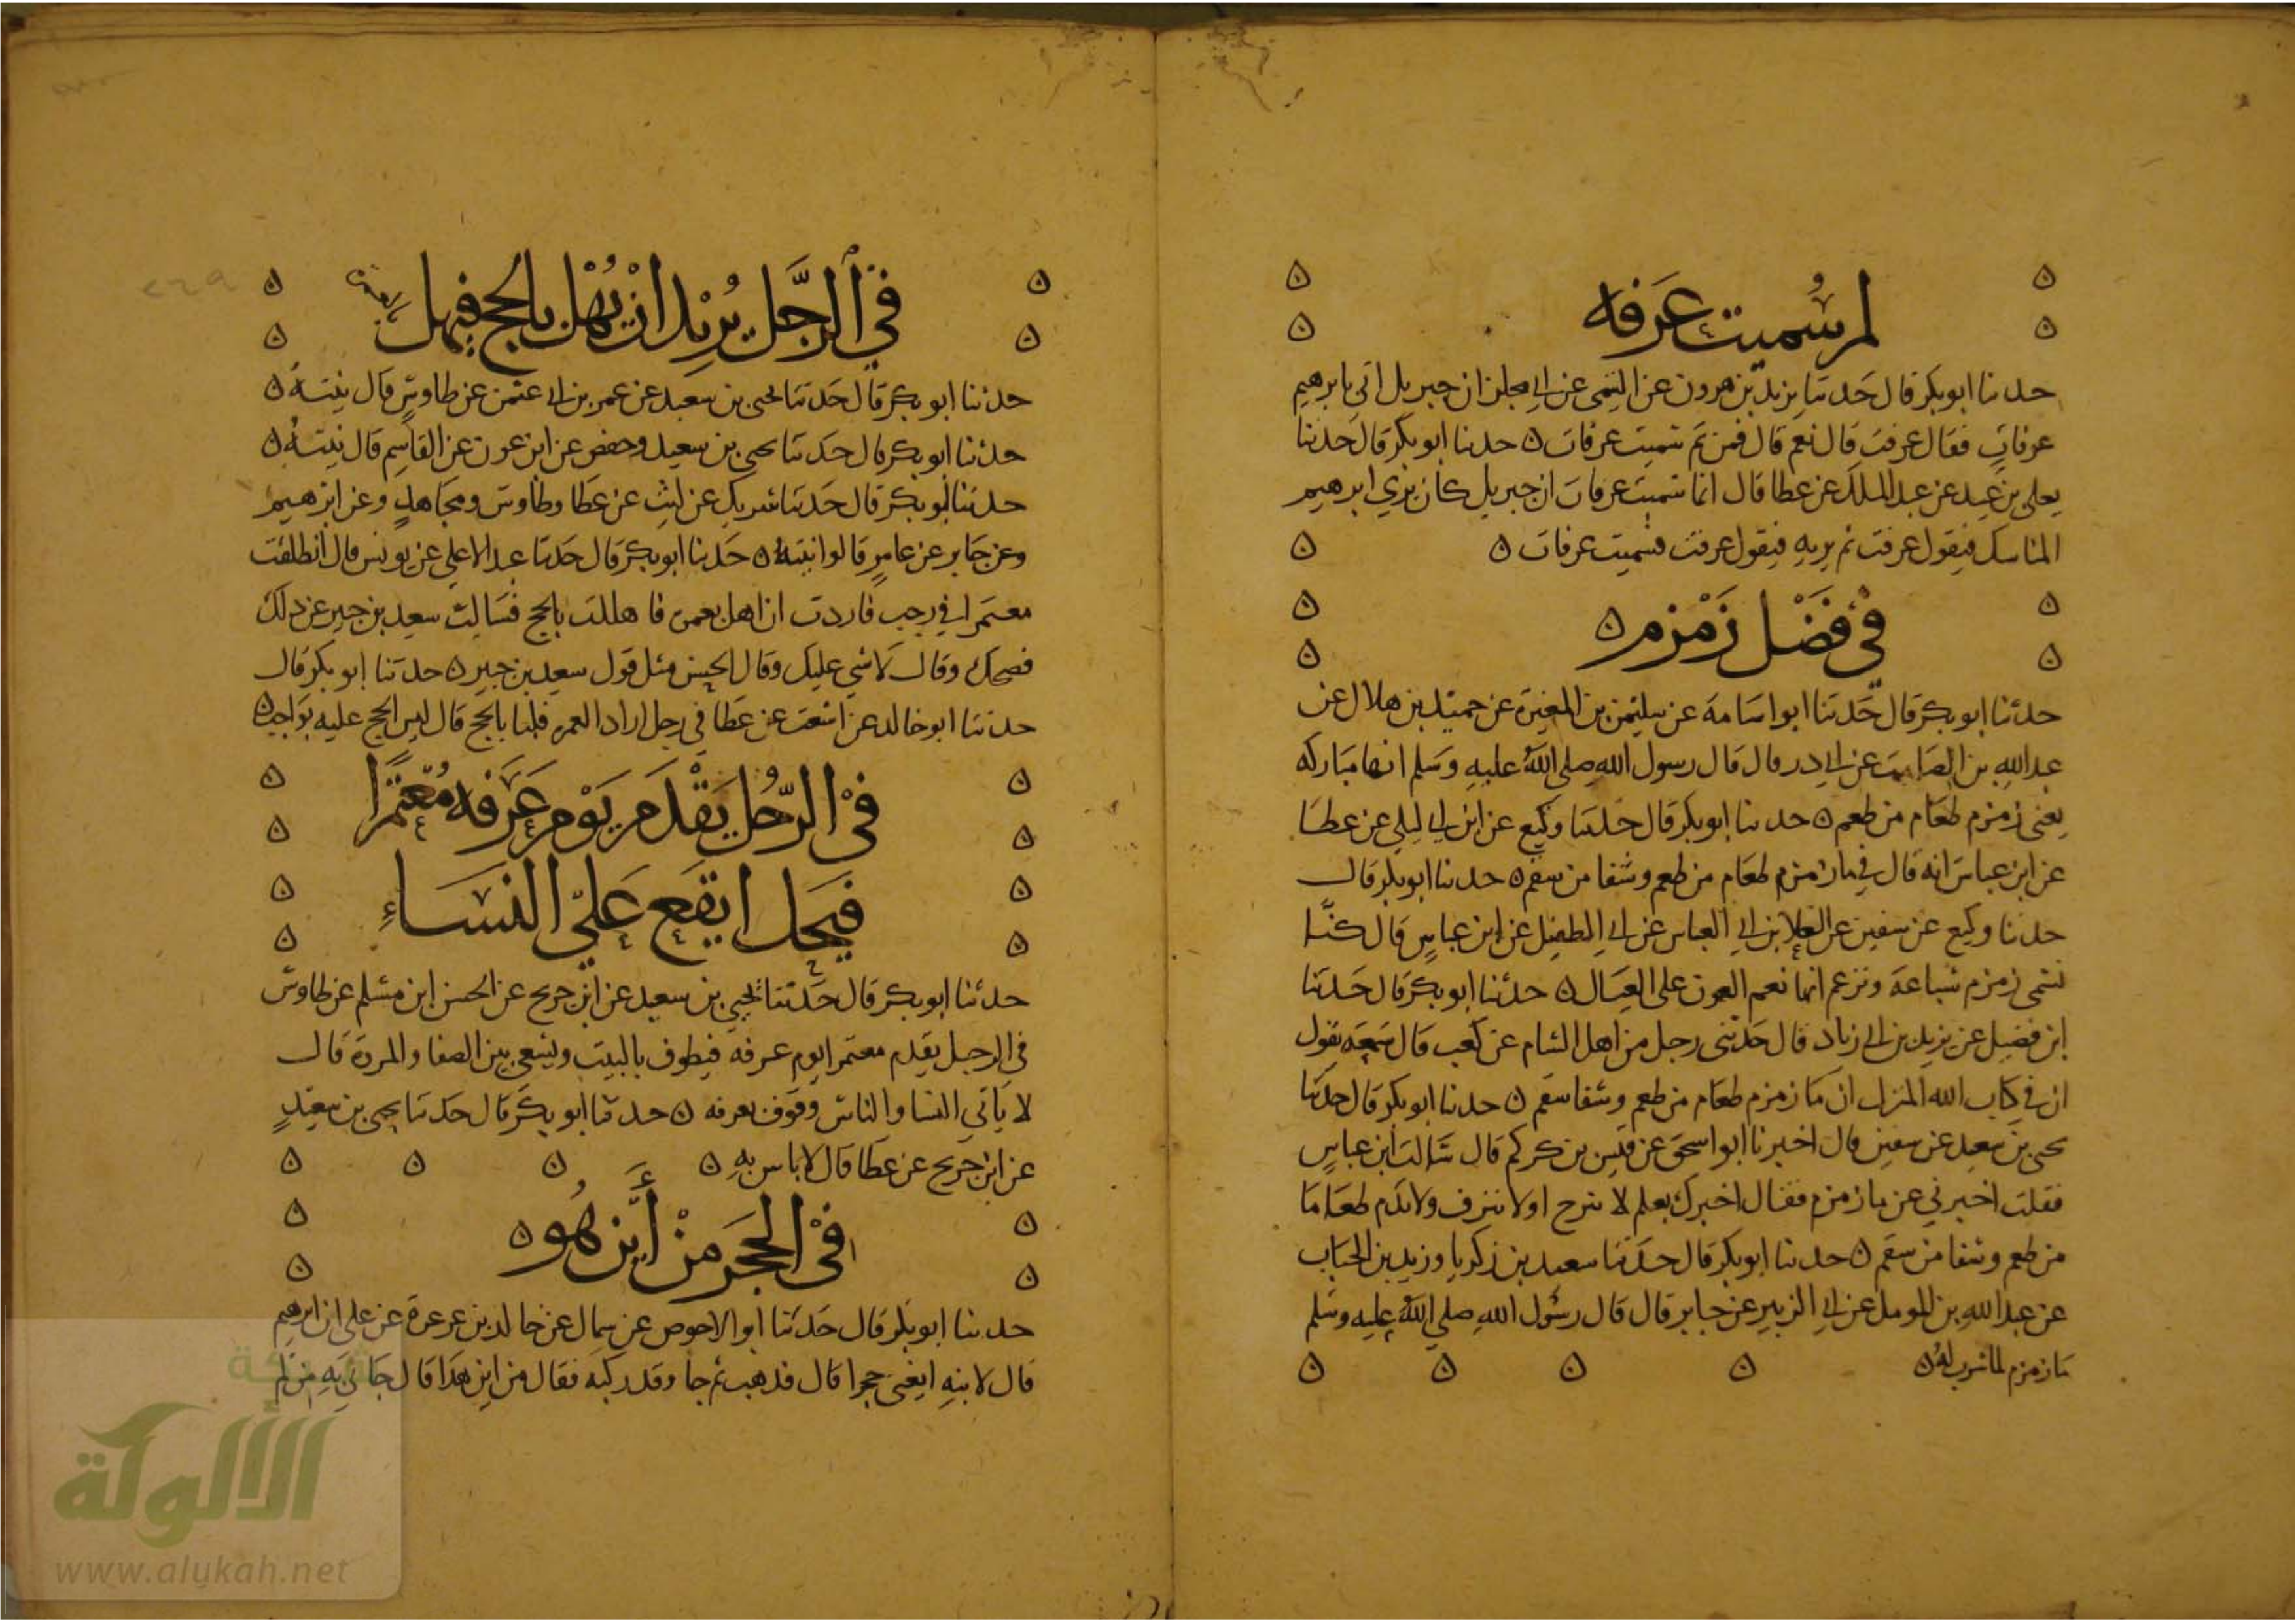 لم سُميت عَرَفه
حدثنا ابو بكر قال حَدثنا يزيد بن هرون عن التيمي عن ابي مجلز ان جبريل اتي بابرهيم
عرفاتٍ فقال عرفت قال نعم قال فمن ثم سميت عرفات ه حدثنا ابو بكر قال حدثنا
يعلي بن عبيد عن عبد الملك عن عطا قال انما سميت عرفات ان جبريل كان يري ابرهيم
المناسك فيقول عرفت ثم يريه فيقول عرفت فسميت عرفات ه
في فَضْل زَمْزم ه
حدثنا ابو بكر قال حَدثنا ابو اسامة عن سليمن بن المغيرة عن حميد بن هلال عن
عبد اللهِ بن الصامت عن ابي ذر قال قال رسول الله صلي اللهُ عليهِ وَسَلم انها مباركه
يعني زمزم طعَام من طعم ه حدثنا ابو بكر قال حَدثنا وكيع عن ابن ابي ليلي عن عطا
عن ابن عباس انه قال في ما زمزم طعَام من طعم وشفا من سقم ه حدثنا ابو بكر قال
حدثنا وكيع عن سفين عن العلا بن ابي العباس عن ابي الطفيل عن ابن عباسٍ قال كنا
نسمي زمزم شباعة ونزعم انها نعم العون علي العيال ه حدثنا ابو بكر قال حَدثنا
ابن فضيل عن يزيد بن ابي زياد قال حَدثني رجل من اهل الشام عن كعب قال سَمعَه يقول
ان في كتاب الله المنزل ان مَا زمزم طعَام من طعم وشفا سقم ه حدثنا ابو بكر قال حدثنا
يحيي بن سعيد عن سفين قال اخبرنا ابو اسحق عن قيس بن كركم قال سَالت ابن عباسٍ
فقلت اخبرني عن ما زمزم فقال اخبرك بعلم لا تنزح او لا تنزف ولا تذم طعَامَا
من طعم وشفا من سقم ه حدثنا ابو بكر قال حَدثنا سعيد بن زكريا وزيد بن الحباب
عن عبد اللهِ بن المومل عن ابي الزبير عن جابر قال قال رسُول اللهِ صلي اللهُ عليه وسَلم
مَا زمزم لما شرب لهُ ه
في الرجَّل يُرْيد انْ يُهْل بالحج فيهل بعمرة
حدثنا ابو بكر قال حَدثنا يحيي بن سعيد عن عمر بن ابي عثمن عن طاوسٍ قال نيتهُ ه
حدثنا ابو بكر قال حَدثنا يحيي بن سعيد وحفص عن ابن عون عن القاسِم قال نيتهُ ه
حدثنا ابو بكر قال حَدثنا شريك عن ليثٍ عن عَطا وطاوس ومجاهدٍ وعن ابرهيم
وعن جَابر عن عامرٍ قالوا نيتهُ ه حَدثنا ابو بكر قال حَدثنا عبد الاعلي عن يونس قال انطلقت
معتمَرا في رجب فاردت ان اهل بعمرة فاهللت بالحج فسَالت سعيد بن جبير عن ذلك
فضحك وقال لاشي عليك وقال الحسن مثل قول سعيد بن جبير ه حدثنا ابو بكر قال
حدثنا ابو خالد عن اشعث عن عَطا في رجل اراد العمره فلبا بالحج قال ليس الحج عليه بوَاجب ه
في الرّجُل يَقْدَم يَوْم عَرَفه مُعْتَمرًا
فيَحل ايقَع عَليْ النسَاءِ
حدثنا ابو بكر قال حَدثنا يحيي بن سعيد عن ابن جريح عن الحسن ابن مسلم عن طاوس
في الرجل يقدم معتمرا يوم عرفه فيطوف بالبيت ويسعي بين الصفا والمروة قال
لا يَاتي النسا والناس وقوف بعرفه ه حدثنا ابو بكر قال حَدثنا يحيي بن سعيدٍ
عن ابن جريح عن عَطا قال لا باس بهِ ه
في الحَجَر مِنْ أَيْن هُو ه
حدثنا ابو بكر قال حَدثنا ابو الاحوص عن سماك عن خالد بن عرعرة عن علي ان ابرهيم
قال لابنهِ ابغني حجرا قال فذهب ثم جا وقد ركبه فقال من اين هَذا قال جَاني بهِ من لم
شبكة
الألوكة
www.alukah.net